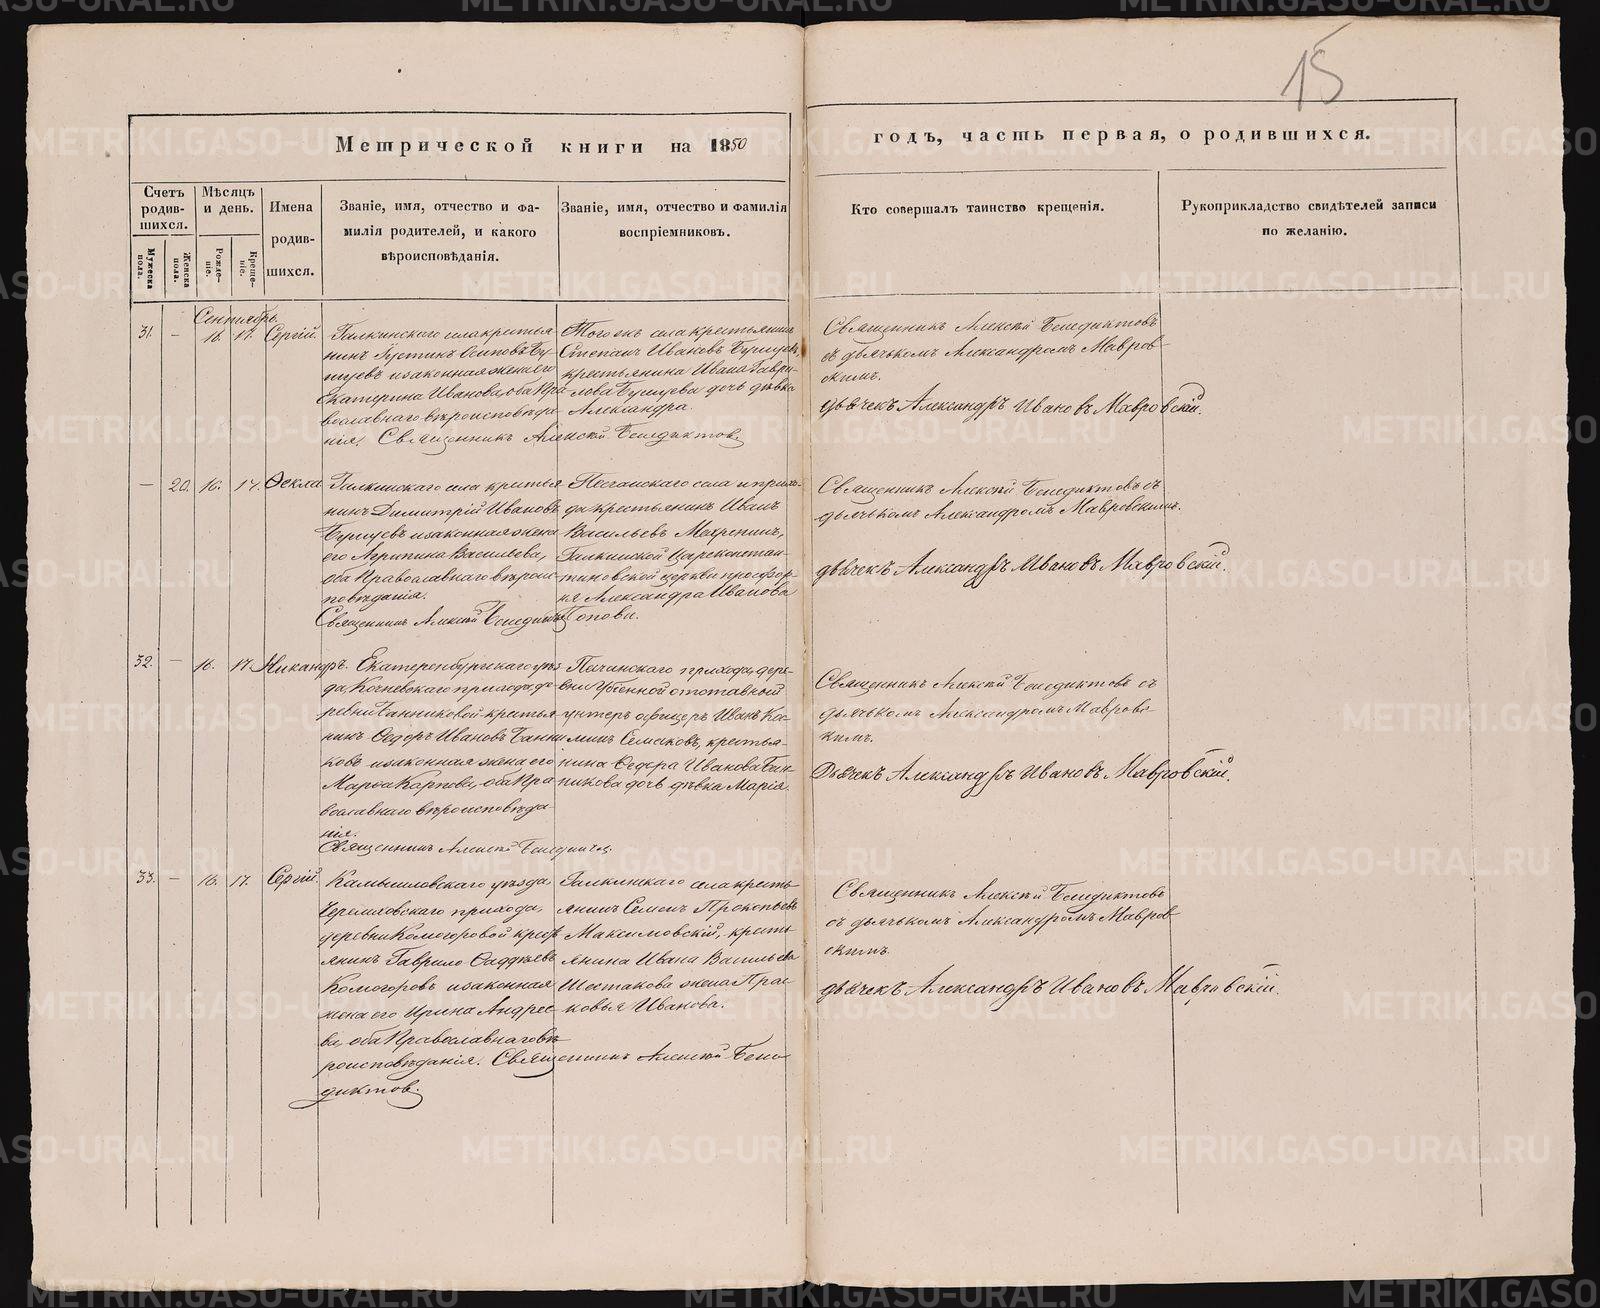 15
Метрической книги на 1850
годъ, часть первая, о родившихся.
Счетъ родив-шихся.
Мѣсяцъ и день.
Имена родив-шихся.
Званіе, имя, отчество и фа-
милія родителей, и какого
вѣроисповѣданія.
Званіе, имя, отчество и фамилія
воспріемниковъ.
Кто совершалъ таинство крещенія.
Рукоприкладство свидѣтелей записи
по желанію.
Мужеска пола.
Женска пола.
Рожде-ніе.
Креще-ніе.
Сентябрь.
31. — 16. 17. Сергій.
Галкинскаго села кресть
янинъ Густинъ Осиповъ Бу-
шуевъ и законная жена его
Екатерина Иванова, оба Пра-
вославнаго вѣроисповѣда-
нія. Священникъ Алексій Бенедиктовъ
Того же села крестьянинъ
Степанъ Ивановъ Бушуевъ,
крестьянина Ивана Гаври-
лова Бушуева дочь дѣвка
Александра.
Священникъ Алексій Бенедиктовъ
съ дьячькомъ Александромъ Мавров-
скимъ.
дьячекъ Александръ Ивановъ Мавровскій.
— 20. 16. 17. Ѳекла
Галкинскаго села кресть
нинъ Димитрій Ивановъ
Бушуевъ и законная жена
его Агрипина Васильева,
оба Православнаго вѣроис-
повѣданія.
Священникъ Алексій Бенедиктовъ
Песчанскаго села и прихо-
да крестьянинъ Иванъ
Васильевъ
Галкинской Цареконстан-
тиновской церкви просфор-
ня Александра Иванова
Попова.
Священникъ Алексій Бенедиктовъ съ
дьячькомъ Александромъ Мавровскимъ.
дьячекъ Александръ Ивановъ Мавровскій.
32. — 16. 17. Никандръ.
Екатеренбургскаго уѣз
да, Кочневскаго прихода, де-
ревни Банниковой крестья
нинъ Ѳедоръ Ивановъ Банни
ковъ и законная жена его
Марѳа Карпова, оба Пра
вославнаго вѣроисповѣда-
нія.
Священникъ Алексій Бенедиктовъ.
Песчанскаго прихода, дере-
вни Убіенной отставный
унтеръ офицеръ Иванъ
Семаковъ, крестья-
нина Ѳедора Иванова Бан-
никова дочь дѣвка Марія.
Священникъ Алексій Бенедиктовъ съ
дьячькомъ Александромъ Мавровс-
кимъ.
Дьячекъ Александръ Ивановъ Мавровскій.
33. — 16. 17. Сергій.
Камышловскаго уѣзда
Черемховскаго прихода,
деревни Комогоровой крест
янинъ Гаврило Ѳаддѣевъ
Комогоровъ и законная
жена его Ирина Андрее-
ва, оба Православнаго вѣ
роисповѣданія. Священникъ Алексій Бене
диктовъ.
Галкинскаго села кресть-
янинъ Семенъ Прокопьевъ
Максимовскій, кресть
янина Ивана Васильева
Шестакова жена Прас-
ковья Иванова.
Священникъ Алексій Бенедиктовъ
съ дьячькомъ Александромъ Мавров-
скимъ.
дьячекъ Александръ Ивановъ Мавровскій.